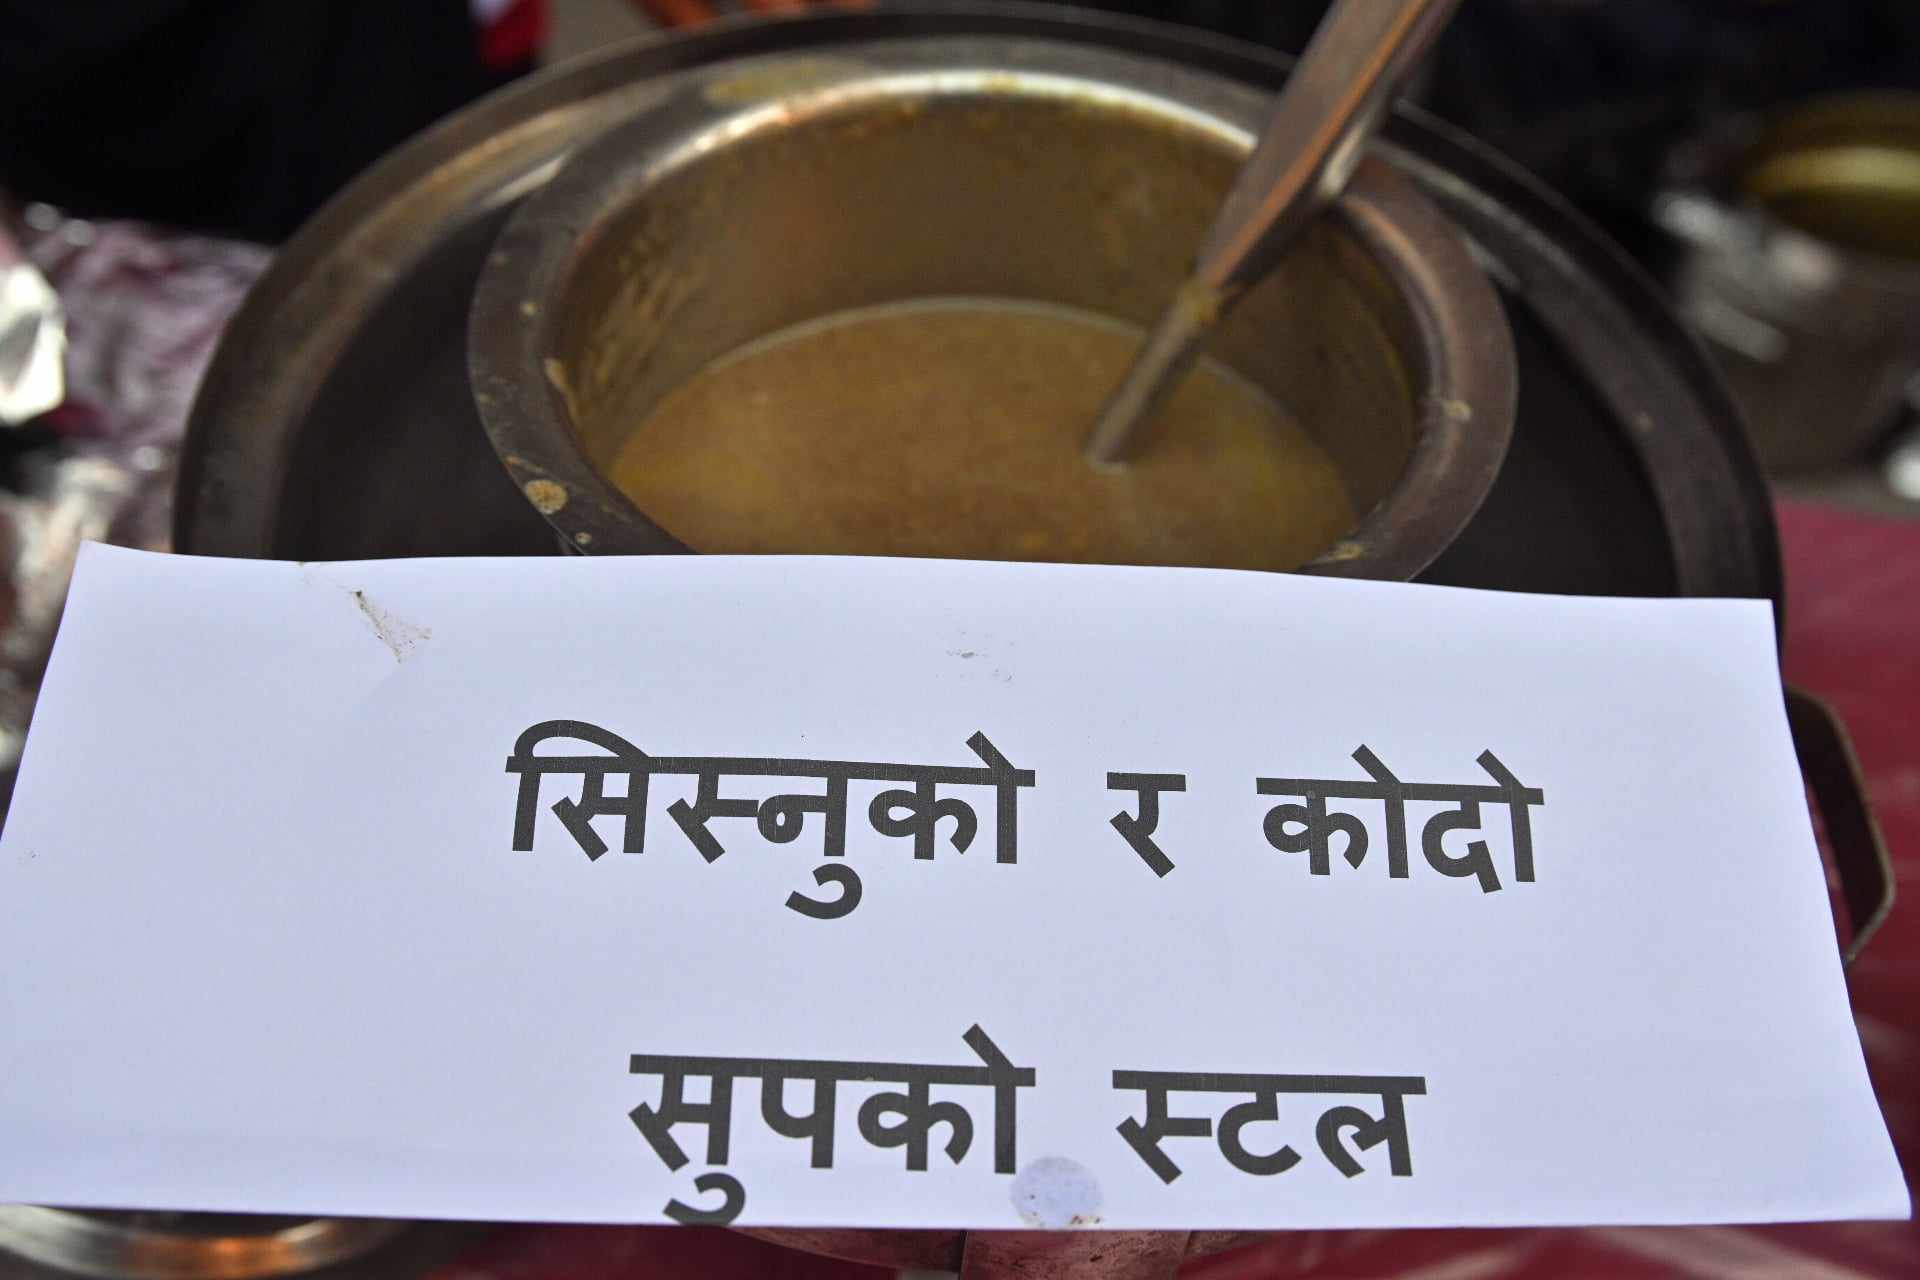 सिस्नुको र कोदो
सुपको स्टल